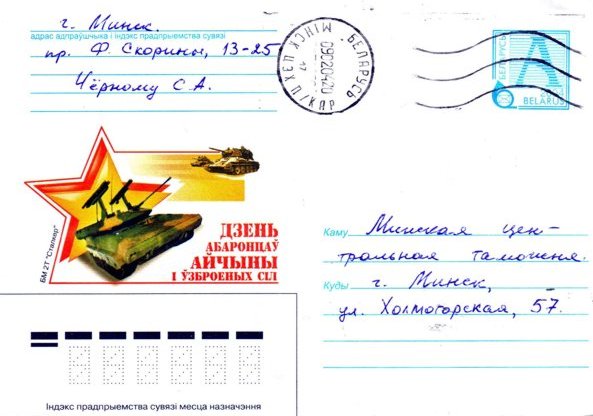 г. Минск.
адрас адпраўшчыка і індэкс прадпрыемства сувязі
пр. Ф. Скорины, 13-25
Чёрному С.А.
БЕЛАРУСЬ
МІНСК
КПР
БЕЛАРУСЬ
A
BELARUS
БМ 2Т "Сталкер"
ДЗЕНЬ
АБАРОНЦАЎ
АЙЧЫНЫ
І ЎЗБРОЕНЫХ СІЛ
Каму Минская цен-
тральная таможня.
Куды г. Минск,
ул. Холмогорская, 57.
Індэкс прадпрыемства сувязі месца назначэння